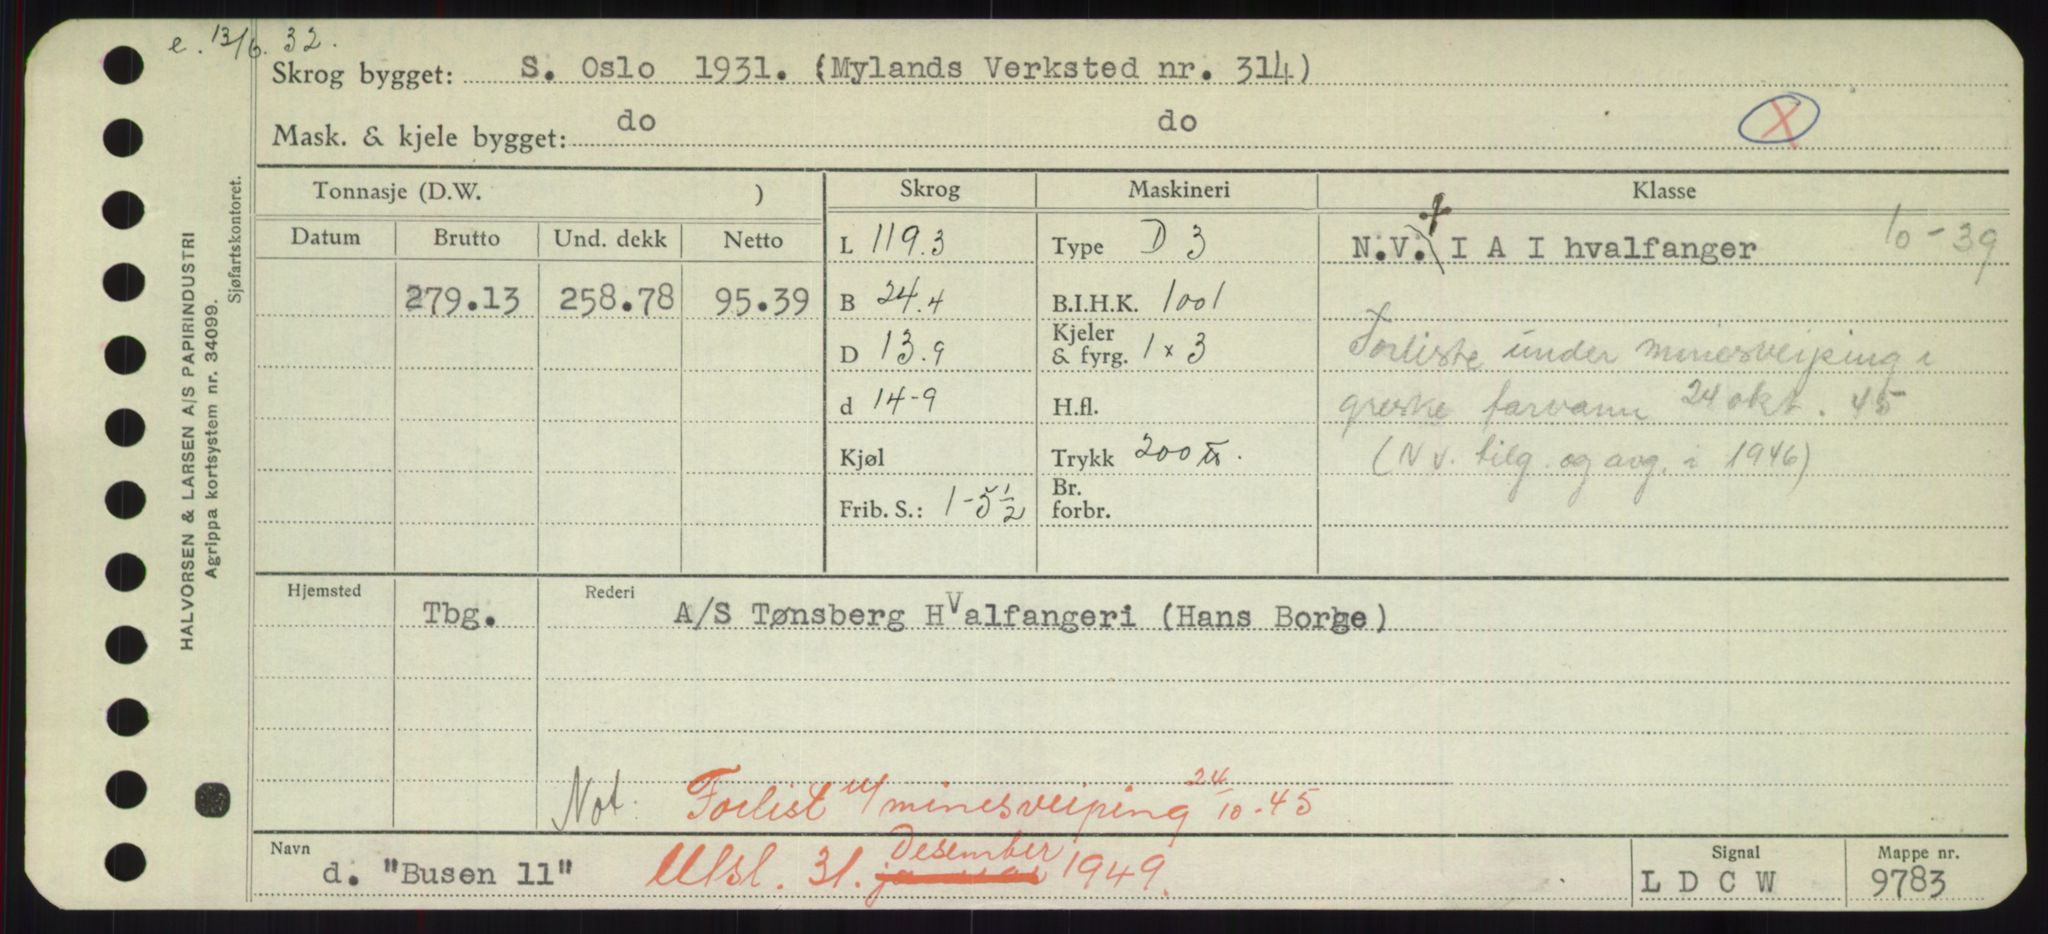 e. 13/6. 32.
Skrog bygget: S. Oslo 1931. (Mylands Verksted nr. 314)
Mask. & kjele bygget: do do
X
HALVORSEN & LARSEN A/S PAPIRINDUSTRI
Agrippa kortsystem nr. 34099.
Sjøfartskontoret.
Tonnasje (D.W. ) Skrog Maskineri Klasse
Datum Brutto Und. dekk Netto
279.13 258.78 95.39
L 119.3
B 24.4
D 13.9
d 14-9
Kjøl
Frib. S.: 1-5 1/2
Type D 3
B.I.H.K. 1001
Kjeler
& fyrg. 1 x 3
H.fl.
Trykk 200 tt.
Br.
forbr.
N.V. + I A I hvalfanger 10-39
Forliste under minesveiping i
greske farvann 24 okt. 45
(N v. tilg. og avg. i 1946)
Hjemsted Rederi
Tbg. A/S Tønsberg Hvalfangeri (Hans Borge)
Not. Forlist u/minesveiping 24/10-45
Navn
d. "Busen 11" Utsl. 31. januar Desember 1949.
Signal
L D C W
Mappe nr.
9783